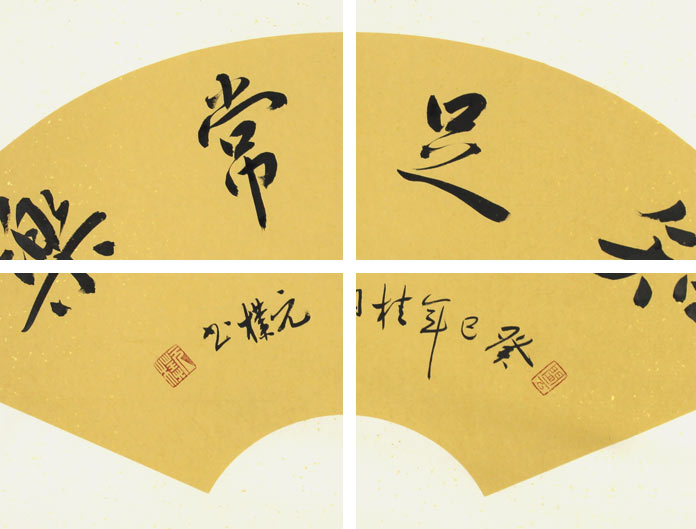 足常樂
癸巳年桂月元樸书